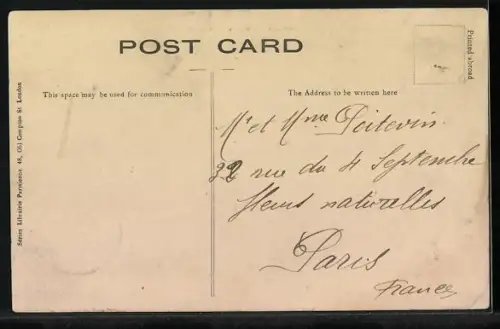 POST CARD
Printed abroad
This space may be used for communication
The Address to be written here
Série Librairie Parisienne 48, Old Compton St London
Mr et Mme Poitevin
32 rue du 4 Septembre
fleurs naturelles
Paris
France